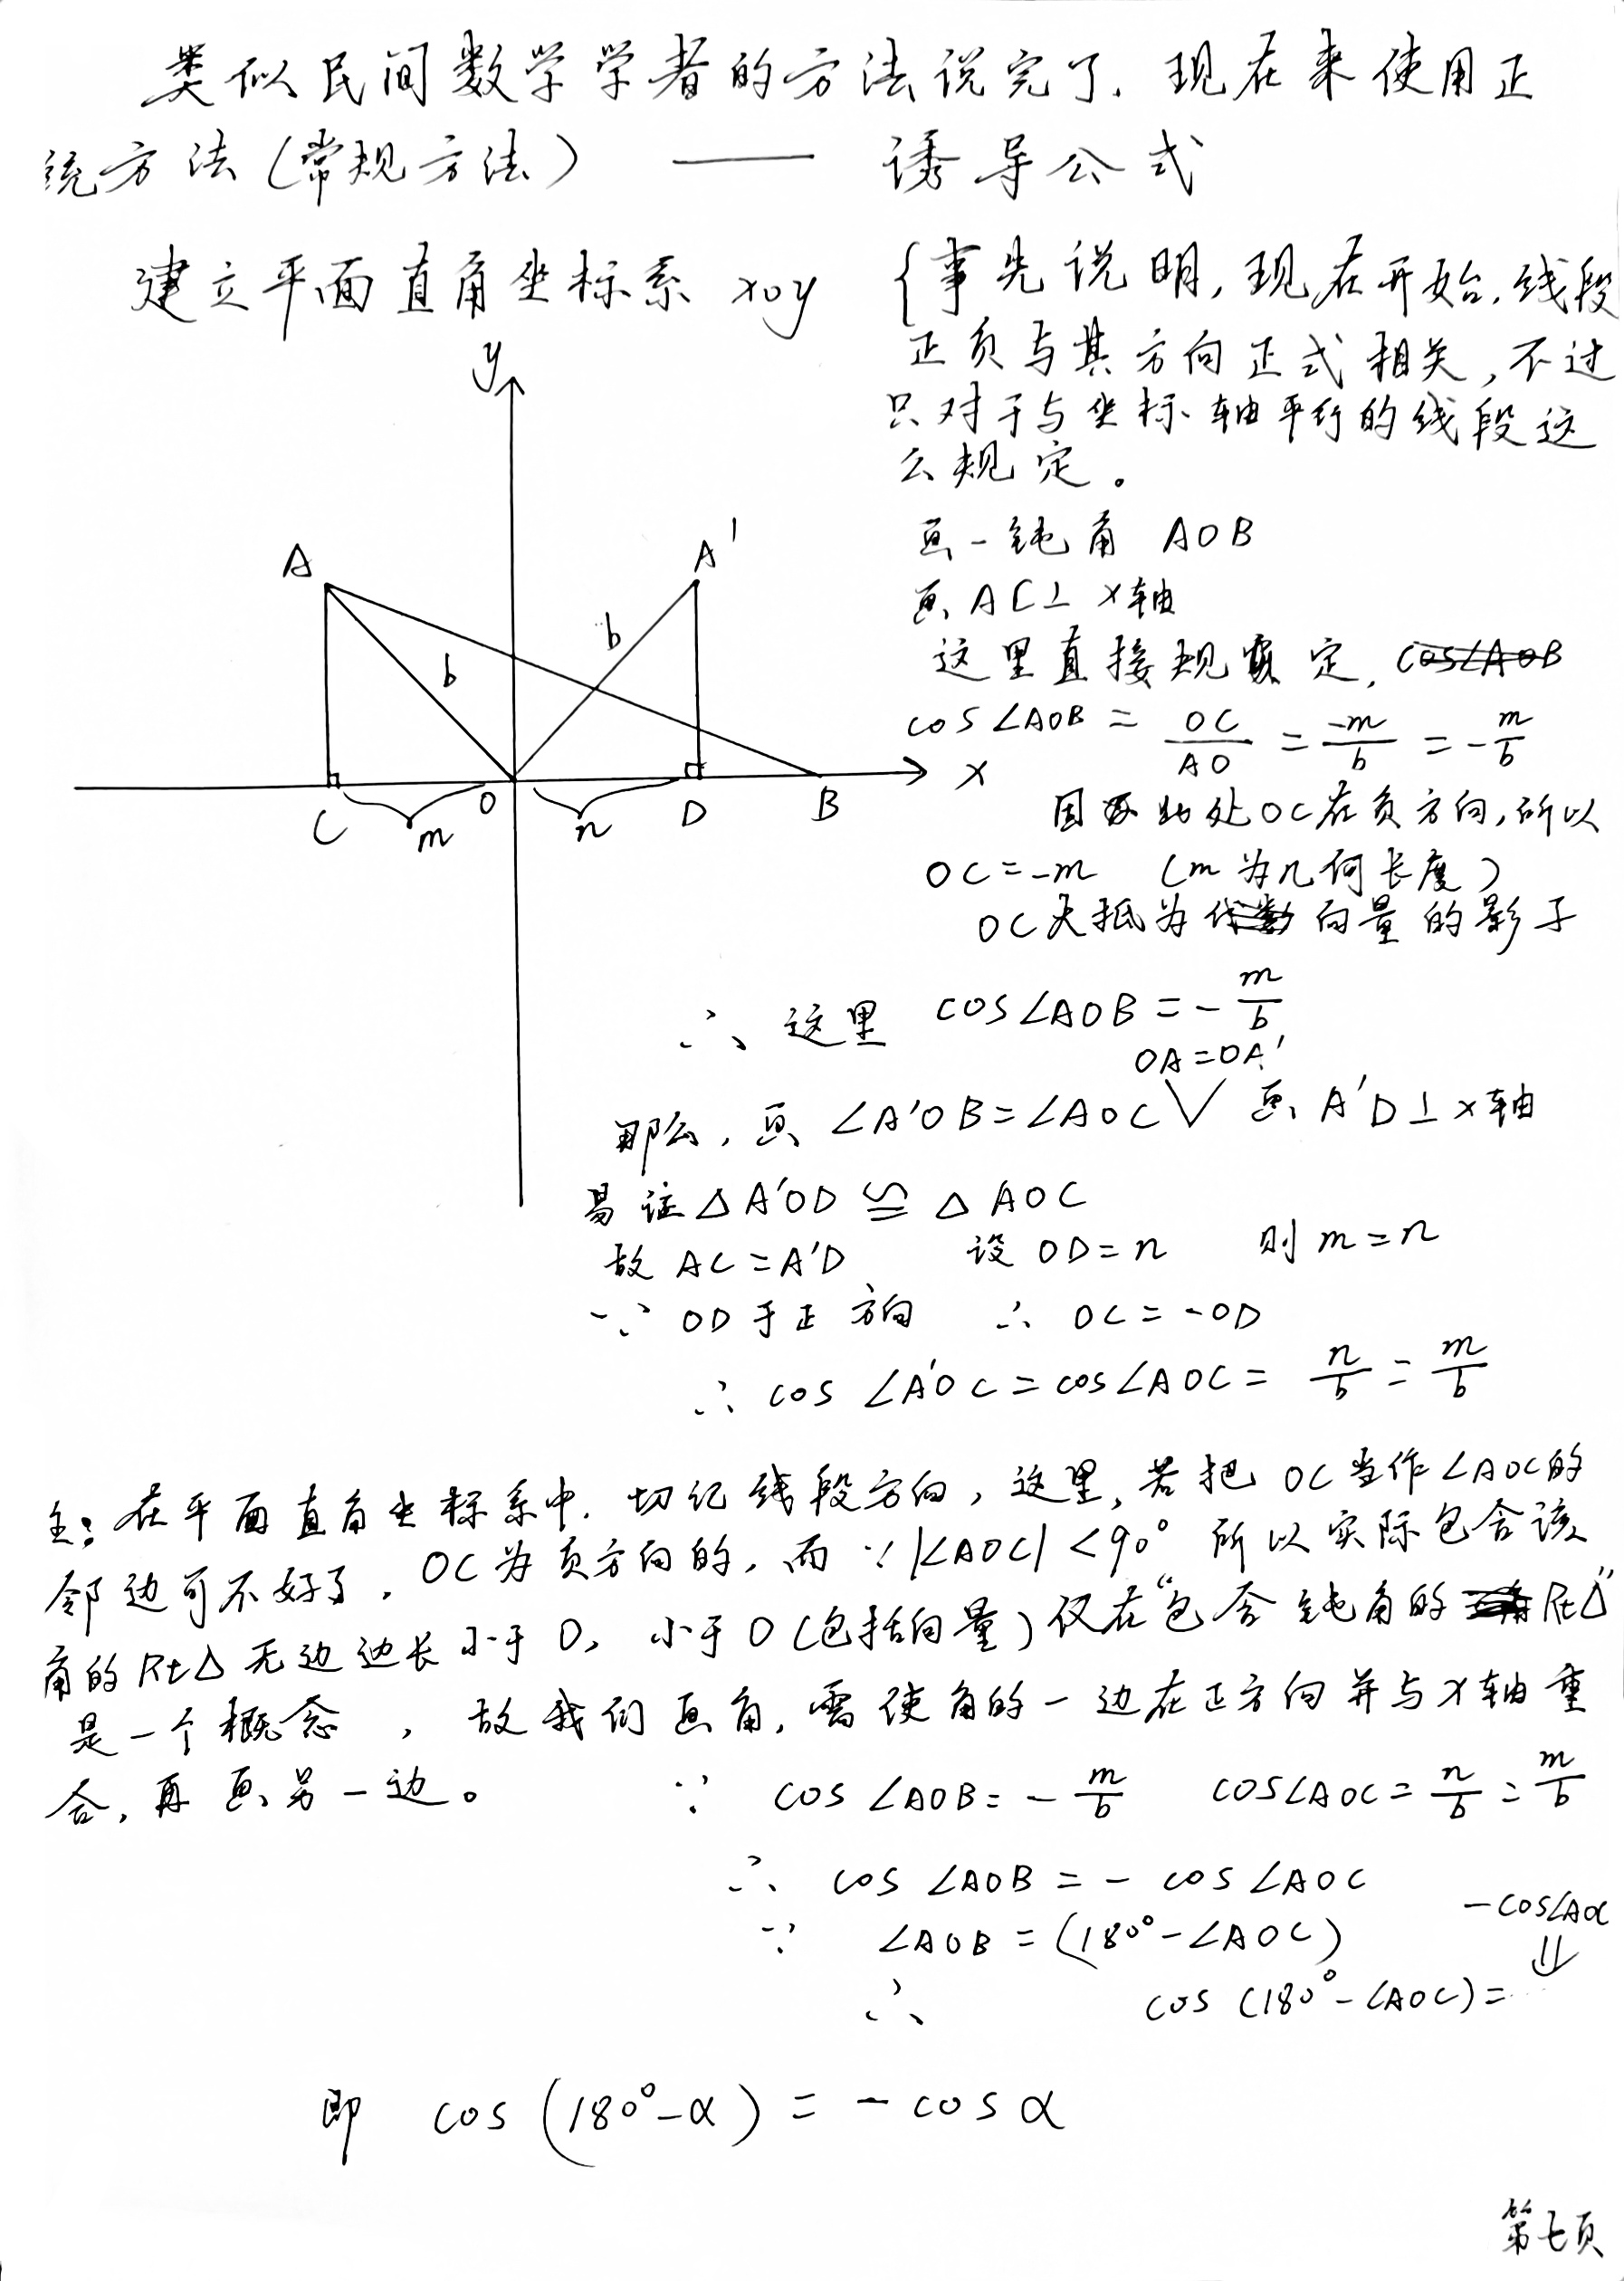 类似民间数学学者的方法说完了. 现在来使用正
统方法(常规方法) —— 诱导公式
建立平面直角坐标系 xoy
{事先说明, 现在开始, 线段
正负与其方向正式相关, 不过
只对于与坐标轴平行的线段这
么规定。
画一钝角 AOB
画 AC⊥x轴
这里直接规定,
cos∠AOB = OC/AO = -m/b = -m/b
因为此处OC在负方向, 所以
OC=-m (m为几何长度)
OC大抵为向量的影子
y
A
A'
b
b
x
C
m
O
n
D
B
∴ 这里 cos∠AOB = -m/b
OA=OA'
那么, 画 ∠A'OB=∠AOC ∨ 画 A'D⊥x轴
易证△A'OD ≌ △AOC
故 AC=A'D 设 OD=n 则 m=n
∵ OD于正方向 ∴ OC=-OD
∴ cos∠A'OC=cos∠AOC= n/b = m/b
注: 在平面直角坐标系中, 切记线段方向, 这里, 若把 OC当作∠AOC的
邻边可不好了, OC为负方向的, 而∵|∠AOC|<90° 所以实际包含该
角的Rt△无边边长小于0, 小于0(包括向量)仅在“包含钝角的Rt△”
是一个概念, 故我们画角, 需使角的一边在正方向并与x轴重
合, 再画另一边。
∵ cos∠AOB= -m/b cos∠AOC= n/b = m/b
∴ cos∠AOB = -cos∠AOC
∵ ∠AOB = (180°-∠AOC)
-cos∠AOC
⇓
∴ cos(180°-∠AOC)=
即 cos(180°-α) = -cosα
第七页